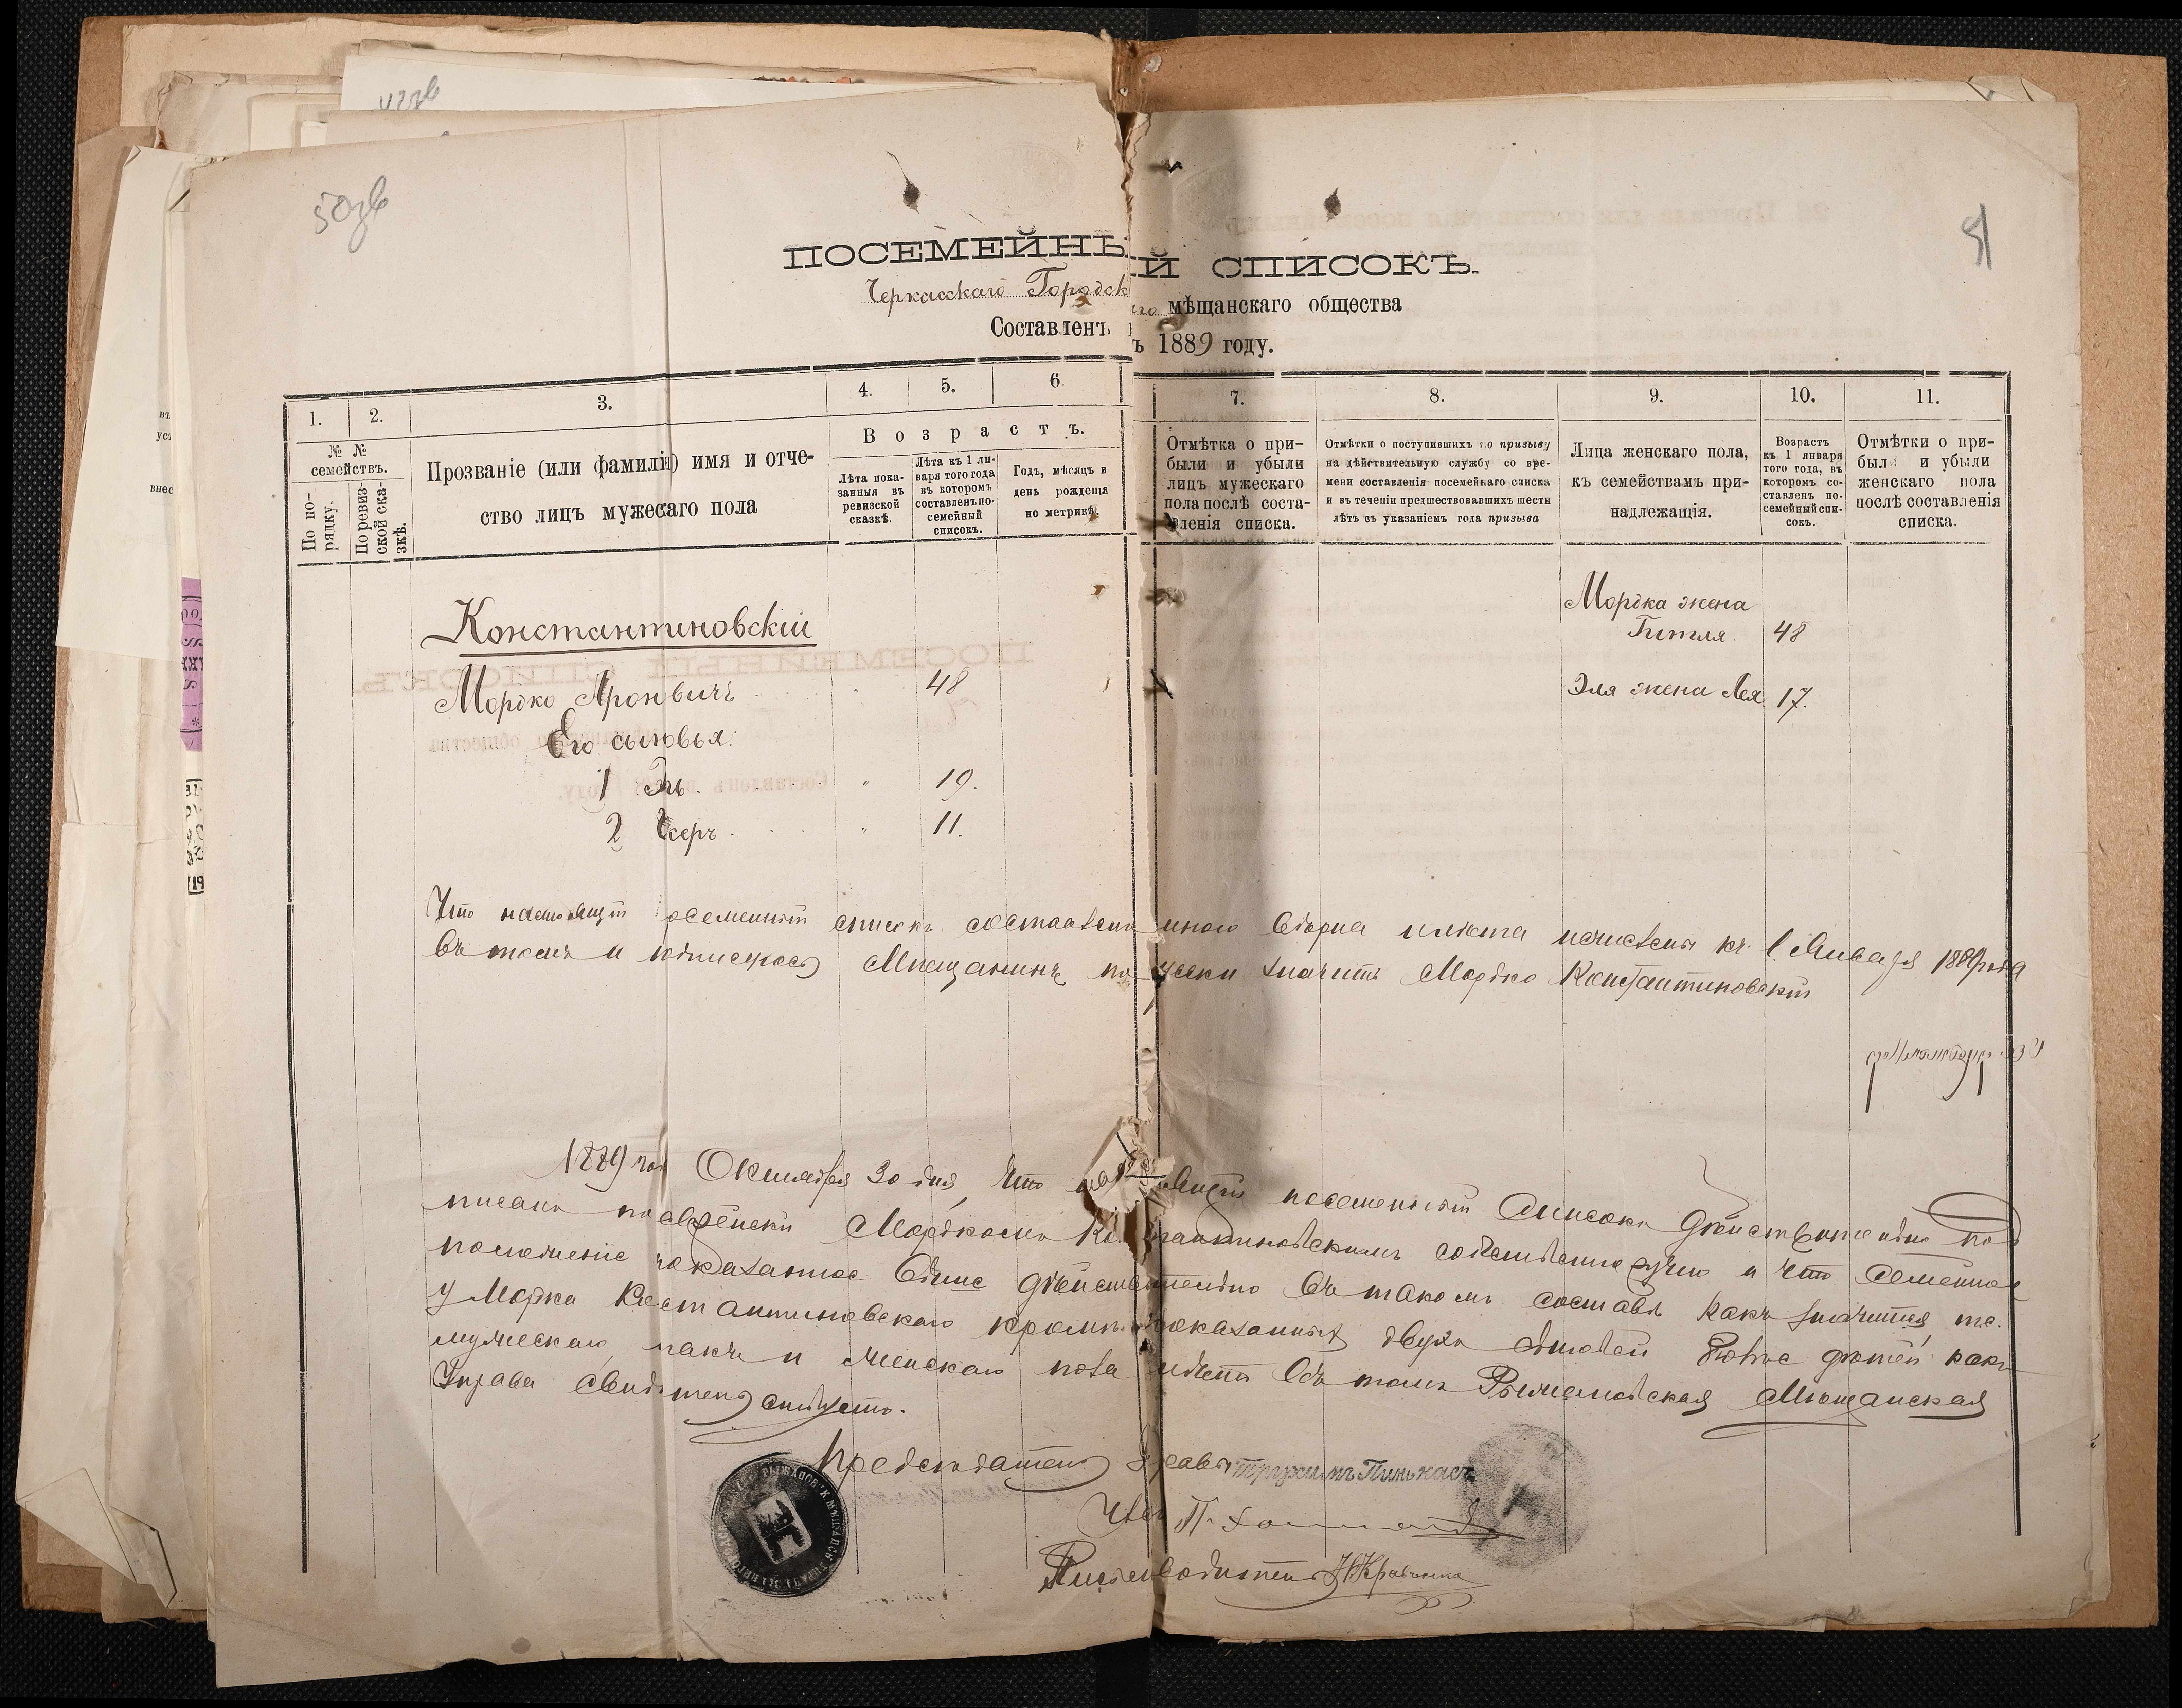 50зв
51
ПОСЕМЕЙНЫЙ СПИСОКЪ.
Черкасскаго Городского мѣщанскаго общества
Составленъ въ 1889 году.
1. 2. 3. 4. 5. 6. 7. 8. 9. 10. 11.
№ № семействъ.
По порядку.
По ревизской сказкѣ.
Прозваніе (или фамилія) имя и отче-
ство лицъ мужескаго пола
Возрастъ.
Лѣта пока-
занныя въ
ревизской
сказкѣ.
Лѣта къ 1 ян-
варя того года
въ которомъ
составленъ по-
семейный
списокъ.
Годъ, мѣсяцъ и
день рожденія
по метрикѣ.
Отмѣтка о при-
были и убыли
лицъ мужескаго
пола послѣ соста-
вленія списка.
Отмѣтки о поступившихъ по призыву
на дѣйствительную службу со вре-
мени составленія посемейнаго списка
и въ теченіи предшествовавшихъ шести
лѣтъ съ указаніемъ года призыва
Лица женскаго пола,
къ семействамъ при-
надлежащія.
Возрастъ
къ 1 января
того года, въ
которомъ со-
ставленъ по-
семейный спи-
сокъ.
Отмѣтки о при-
были и убыли
женскаго пола
послѣ составленія
списка.
Константиновскій
Мордка жена
Гитля 48
Мордко Ароновичъ 48
Эля жена Лея 17.
Его сыновья:
1 Эль 19.
2 Iсеръ 11.
Что настоящій посемейный списокъ составленъ мною вѣрна и лѣта исчислены къ 1 Января 1889 года
въ томъ и подписуюсь Мищанинъ Мордко Константиновскій
1889 года Октября 30 дня, что настоящій посемейный списокъ дѣйствительно под
писанъ по еврейски Мордкомъ Константиновскимъ собственноручно и что семейное
положеніе показанное выше дѣйствительно въ такомъ составѣ какъ значится
у Мордка Константиновскаго кромѣ показанныхъ двухъ сыновей дѣтей какъ
мужескаго такъ и женскаго пола нѣтъ въ томъ Рыжановская Мѣщанская
Управа свидѣтельствуетъ.
Предсѣдатель Управы Трухимъ Пинькасъ
Членъ
Письмоводитель